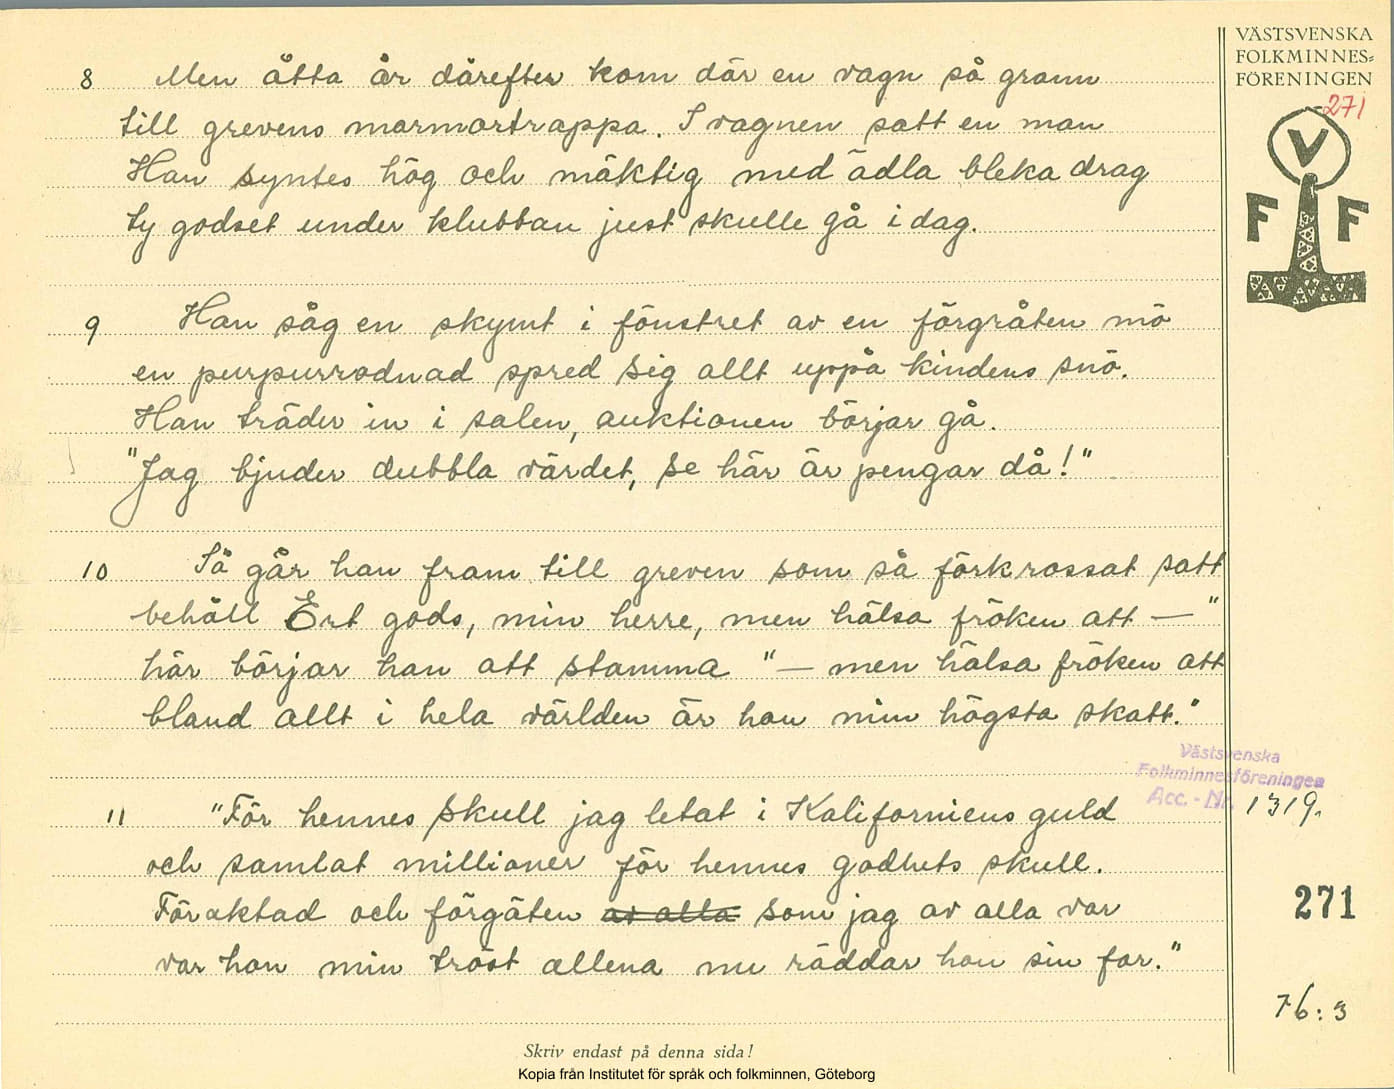 VÄSTSVENSKA
FOLKMINNES=
FÖRENINGEN
271
V
F F
8 Men åtta år därefter kom där en vagn så grann
till grevens marmortrappa. I vagnen satt en man
Han syntes hög och mäktig med ädla bleka drag
ty godset under klubban just skulle gå i dag.
9 Han såg en skymt i fönstret av en förgråten mö
en purpurrodnad spred sig allt uppå kindens snö.
Han träder in i salen, auktionen börjar gå.
"Jag bjuder dubbla värdet, se här är pengar då!"
10 Så går han fram till greven som så förkrossat satt
behåll Ert gods, min herre, men hälsa fröken att — "
här börjar han att stamma "— men hälsa fröken att
bland allt i hela världen är hon min högsta skatt."
Västsvenska
Folkminnesföreningen
Acc. - Nr. 1319.
11 "För hennes skull jag letat i Kaliforniens guld
och samlat millioner för hennes godhets skull.
Föraktad och förgäten av alla som jag av alla var
var hon min tröst allena nu räddar hon sin far."
271
76:3
Skriv endast på denna sida!
Kopia från Institutet för språk och folkminnen, Göteborg